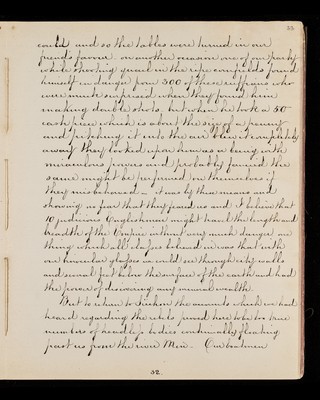 33
could and so the tables were turned in our
friends favour on another occasion one of our party
while shooting quail in the ripe cornfields found
himself in danger from 300 of these ruffians who
were much surprised when they found him
making double shots, but when he took a 50
cash piece which is about the size of a penny
and pitching it into the air blew it completely
away they looked upon him as a being with
miraculous powers and probably fancied the
same might be performed on themselves if
they misbehaved – it was by these means and
showing no fear that they feared us and I believe that
10 judicious Englishmen might travel the length and
breadth of the Empire without very much danger one
thing which all classes believed in was that with
our binocular glasses we could see through city walls
and several feet below the surface of the earth and had
the power of discovering any mineral wealth.
But to return to Sinkin the accounts which we had
heard regarding the rebels proved here to be too true
numbers of headless bodies continually floating
past us from the river Min – Our boatmen
52